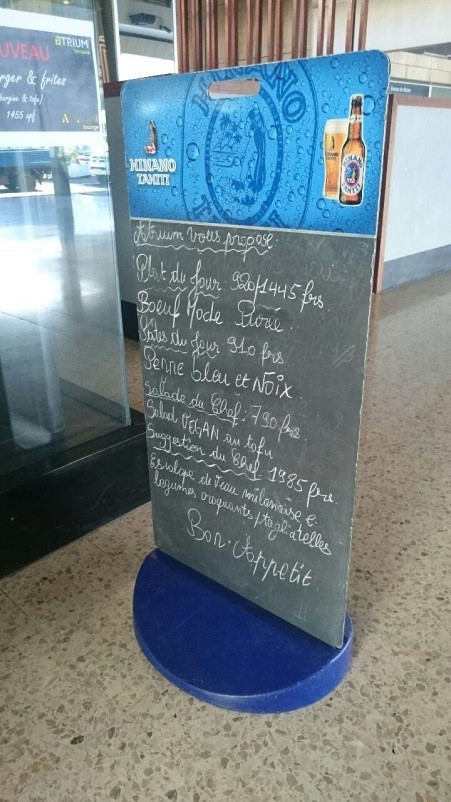 UVEAU
ATRIUM
rger & frites
1455 xpf
HINANO
TAHITI
HINANO
TAHITI
Atrium vous propose
Plat du Jour 920/1445 frs
Boeuf Mode Purée.
Pates du Jour 910 frs
Penne bleu et NOIX
Salade du Chef: 790 frs
Salad VEGAN au tofu
Suggestion du Chef 1985 frs
Escalope de Veau milanaise e
legumes croquants / tagliatelles
Bon Appetit